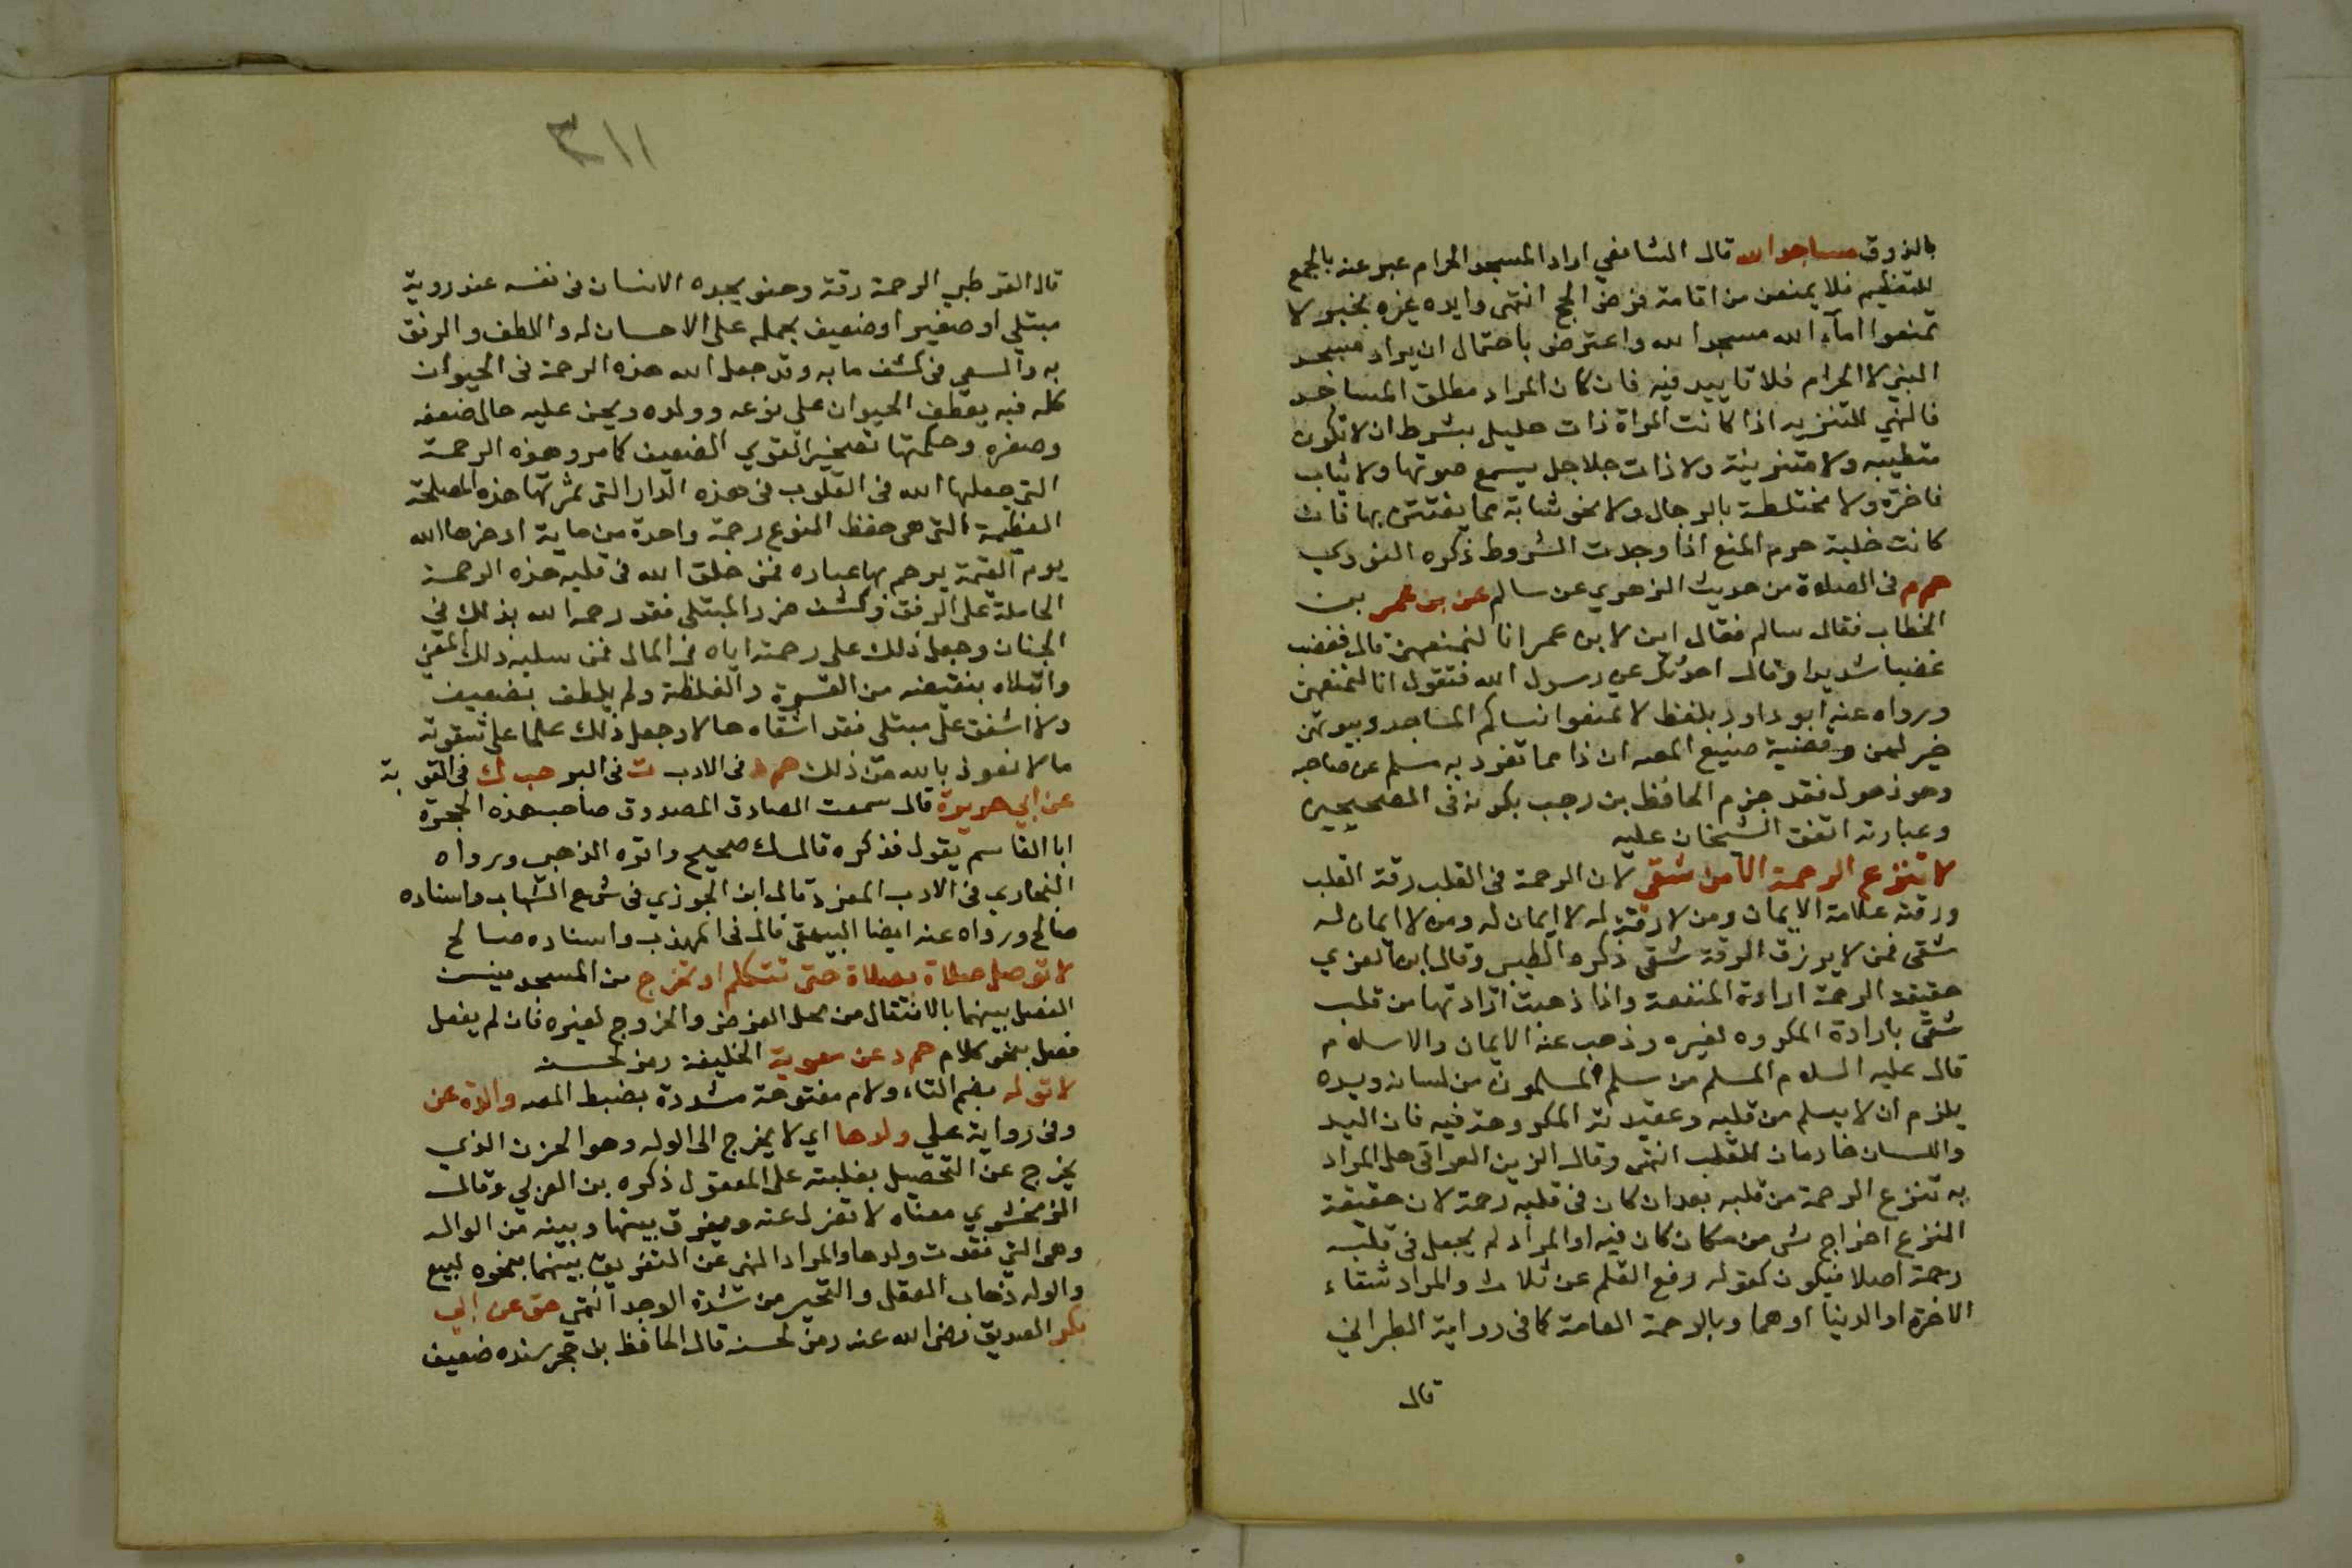 بالذوق مساجد الله قال الشافعي اراد المسجد الحرام عبر عنه بالجمع
للتعظيم فلا يمنعن من اقامة فرض الحج انتهى وايده غيره بخبر لا
تمنعوا اماء الله مسجد الله واعترض باحتمال ان يراد مسجد
النبي لا الحرام فلا تاييد فيه فان كان المراد مطلق المساجد
فالنهي للتنزيه اذا كانت المراة ذات حليل بشرط ان لا تكون
متطيبه ولا متزينة ولا ذات جلاجل يسمع صوتها ولا ثياب
فاخرة ولا مختلطة بالرجال ولا نحو شابة مما يفتتن بها فان
كانت خلية حرم المنع اذا وجدت الشروط ذكره النووي
حم م في الصلاة من حديث الزهري عن سالم عن بن عمر بن
الخطاب فقال سالم فقال ابن لابن عمر انا لنمنعهن قال فغضب
غضبا شديدا وقال احدثك عن رسول الله فتقول انا لنمنعهن
ورواه عنه ابو داود بلفظ لا تمنعوا نساكم المساجد وبيوتهن
خير لهن وقضية صنيع المصـ ان ذا مما تفرد به مسلم عن صاحبه
وهو ذهول فقد جزم الحافظ بن رجب بكونه في الصحيحين
وعبارته اتفق الشيخان عليه
لا تنزع الرحمة الا من شقي لان الرحمة في القلب رقة القلب
ورقته علامة الايمان ومن لا رقة له لا ايمان له ومن لا ايمان له
شقي فمن لا يرزق الرقة شقي ذكره الطيبي وقال ابن العربي
حقيقة الرحمة ارادة المنفعة واذا ذهبت ارادتها من قلب
شقي بارادة المكروه لغيره وذهب عنه الايمان والاسلام
قال عليه السلام المسلم من سلم المسلمون من لسانه ويده
يلزم ان لا يسلم من قلبه وعقيدته المكروهة فيه فان اليد
واللسان خادمان للقلب انتهى وقال الزين العراقي هل المراد
به تنزع الرحمة من قلبه بعد ان كان في قلبه رحمة لان حقيقة
النزع اخراج شي من مكان كان فيه او المراد لم يجعل في قلبه
رحمة اصلا فيكون كقوله رفع القلم عن ثلاث والمراد شقاء
الاخرة او الدنيا او هما وبالرحمة العامة كما في رواية الطبراني
قال
٣١١
قال القرطبي الرحمة رقة وحنو يجده الانسان في نفسه عند روية
مبتلي او صغير او ضعيف يحمله على الاحسان له واللطف والرفق
به والسعي في كشف ما به وقد جعل الله هذه الرحمة في الحيوان
كله فبه يعطف الحيوان على نوعه وولده ويحن عليه حال ضعفه
وصغره وحكمتها تسخير القوي للضعيف كما مر وهذه الرحمة
التي جعلها الله في القلوب في هذه الدار التي ثمرتها هذه المصلحة
العظيمة التي هي حفظ النوع رحمة واحدة من ماية ادخرها الله
يوم القيمة يرحم بها عباده فمن خلق الله في قلبه هذه الرحمة
الحاملة على الرفق وكشف ضر المبتلى فقد رحمه الله بذلك في
الجنان وجعل ذلك على رحمته اياه في المال فمن سلبه ذلك المعنى
وابتلاه بنقيضه من القسوة والغلظة ولم يلطف بضعيف
ولا اشفق على مبتلى فقد اشقاه حالا وجعل ذلك علما على شقوته
مالا نعوذ بالله من ذلك حم د في الادب ت في البر حب ك في التوبة
عن ابي هريرة قال سمعت الصادق المصدوق صاحب هذه الحجرة
ابا القاسم يقول فذكره قال ك صحيح واقره الذهبي ورواه
البخاري في الادب المفرد قال ابن الجوزي في شرح الشهاب واسناده
صالح ورواه عنه ايضا البيهقي قال في المهذب واسناده صالح
لا توصل صلاة بصلاة حتى تتكلم او تخرج من المسجد فيسن
الفصل بينهما بالانتقال من محل الفرض والخروج لغيره فان لم يفعل
فصل بنحو كلام حم د عن معوية الخليفة رمز لحسنه
لا توله بضم التاء ولام مفتوحة مشددة بضبط المصـ والدة عن
وفي رواية علي ولدها اي لا يخرج الى الوله وهو الحزن الذي
يخرج عن التحصيل بغلبته على المعقول ذكره بن العربي وقال
الزمخشري معناه لا تعزل عنه ويفرق بينها وبينه من الواله
وهي التي فقدت ولدها والمراد النهي عن التفريق بينهما بنحو بيع
والوله ذهاب العقل والتحير من شدة الوجد انتهى هق عن ابي
بكر الصديق رضي الله عنه رمز لحسنه قال الحافظ بن حجر سنده ضعيف